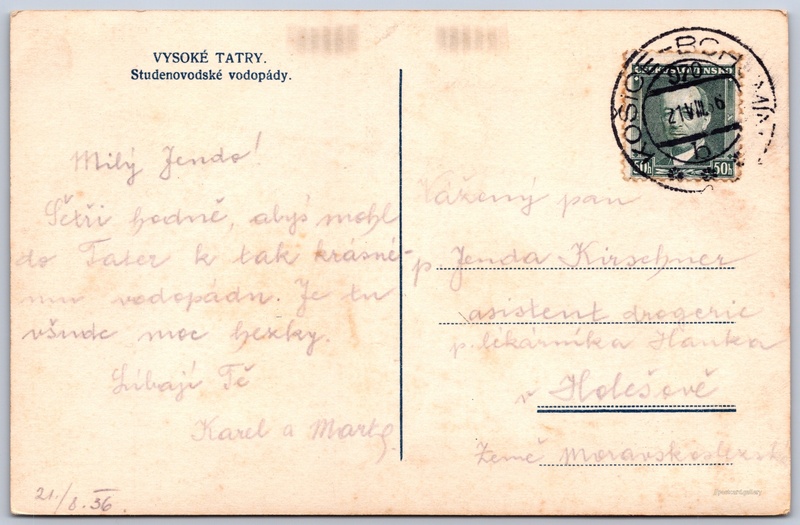 VYSOKÉ TATRY.
Studenovodské vodopády.
Milý Jendo!
Šetři hodně, abyś mohl
do Tater k tak krásné-
mu vodopádu. Je tu
všude moc hezky.
Líbají Tě
Karel a Marta
21/8. 36.
ČESKOSLOVENSKO
50h 50h
KOŠICE-BOH
21 VIII 36
b
Vážený pan
p. Jenda Kirschner
asistent drogerie
p. lékárníka Haňka
v Holešově
Země Moravskoslezská